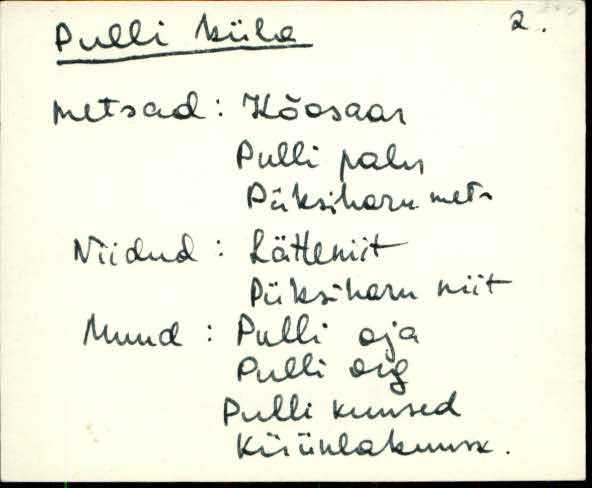 Pulli küla 2.
Metsad: Kõosaar
Pulli palu
Püksiharu mets
Niidud: Lätteniit
Püksiharu niit
Muud: Pulli oja
Pulli org
Pulli kuused